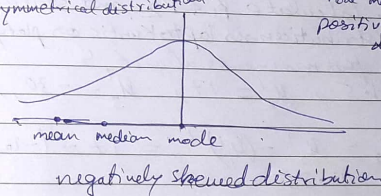 ymmetrical distributi
positiv
mean median mode
negatively skewed distribution